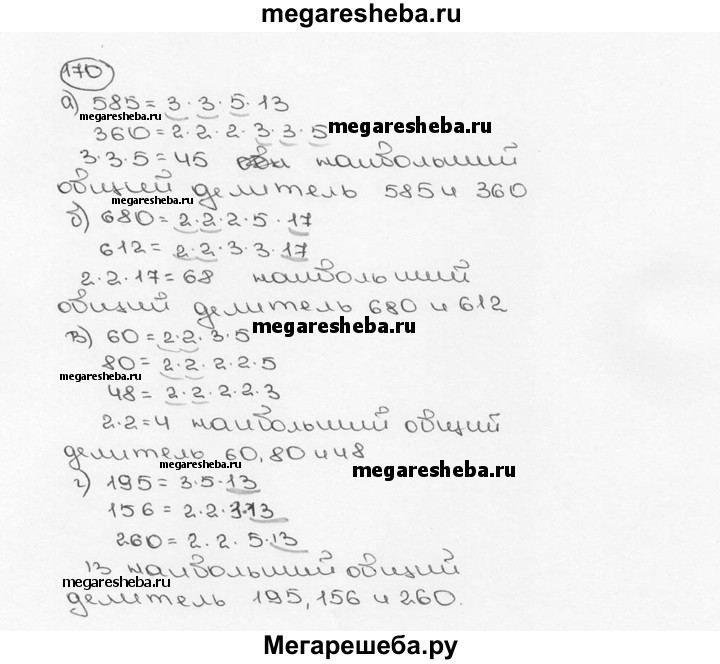 megaresheba.ru
170
а) 585 = 3·3·5·13
megaresheba.ru
360 = 2·2·2·3·3·5 megaresheba.ru
3·3·5=45 наибольший
megaresheba.ru
общий делитель 585 и 360
б) 680 = 2·2·2·5·17
612 = 2·2·3·3·17
2·2·17=68 наибольший
общий делитель 680 и 612
в) 60 = 2·2·3·5 megaresheba.ru
80 = 2·2·2·2·5
megaresheba.ru
48 = 2·2·2·2·3
2·2=4 наибольший общий
делитель 60, 80 и 48
megaresheba.ru
megaresheba.ru
г) 195 = 3·5·13
156 = 2·2·3·13
260 = 2·2·5·13
13 наибольший общий
megaresheba.ru
делитель 195, 156 и 260.
Мегарешеба.ру